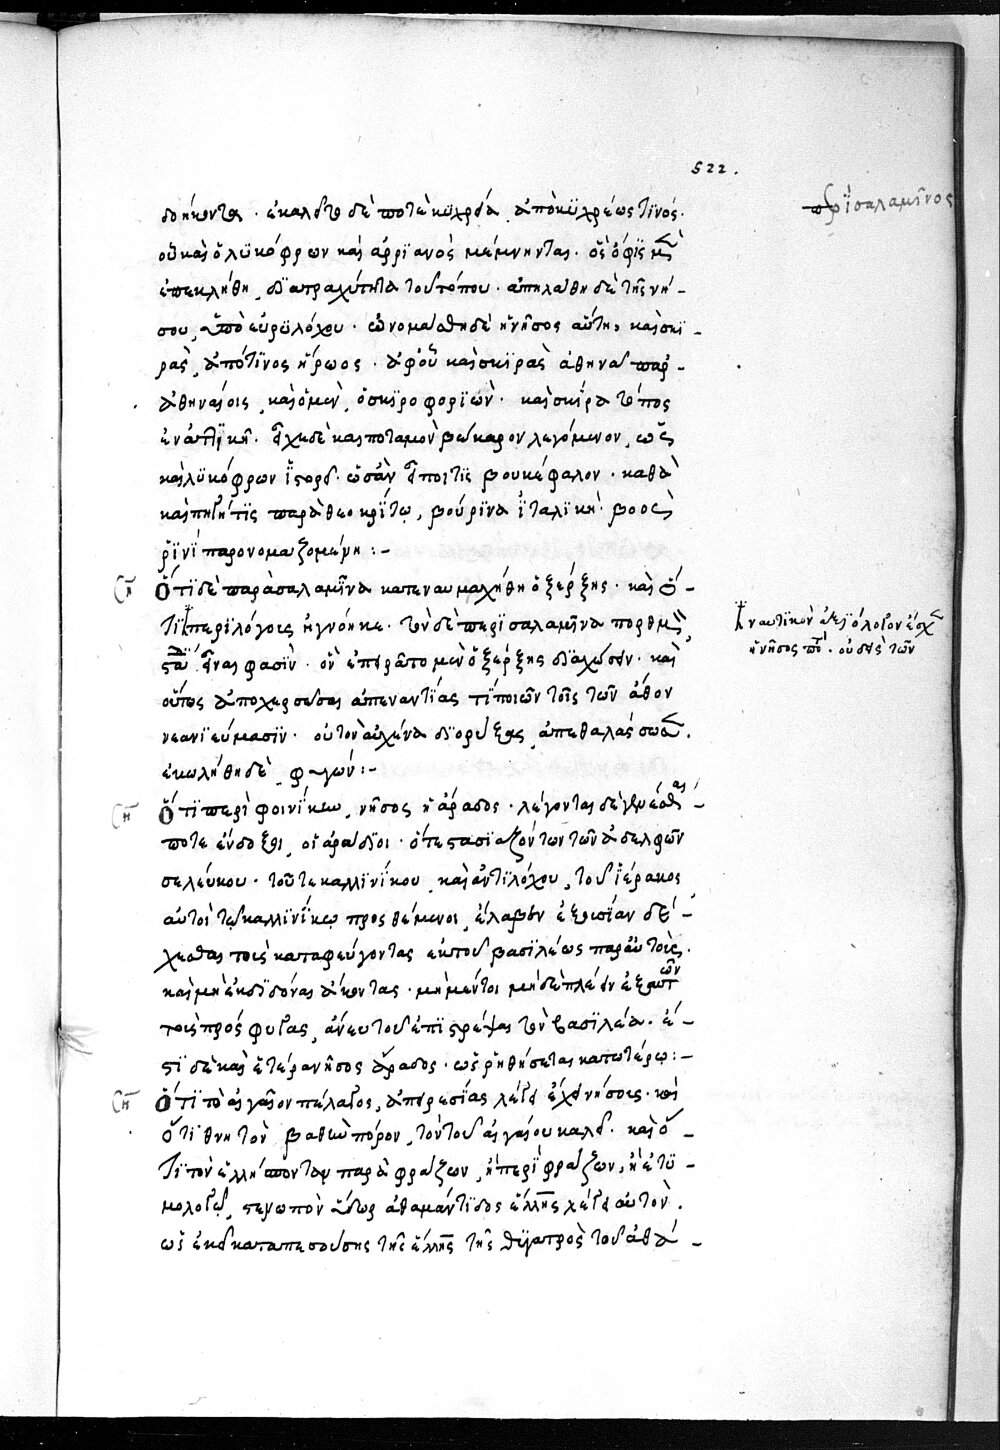 522.
περὶ σαλαμῖνος
δοήκοντα. ἐκαλεῖτο δέ ποτε κυχρεία ἀπὸ κυχρέως τινός.
οὗ καὶ ὁ λυκόφρων καὶ ἀρριανὸς μέμνηνται. ὃς ὄφις μὲν
ἐπεκλήθη, διὰ τραχύτητα τοῦ τόπου. ἀπηλάθη δὲ τῆς νή-
σου, ὑπὸ εὐρυλόχου. ὠνομάσθη δὲ ἡ νῆσος αὕτη, καὶ σκι-
ρὰς, ἀπό τινος ἥρωος. ἀφ' οὗ καὶ σκιρὰς ἀθηνᾶ παρ'
ἀθηναίοις, καὶ ὁ μὴν, ὁ σκιροφοριών. καὶ σκίρα τόπος
ἐν ἀττικῇ. ἔχει δὲ καὶ ποταμὸν βώκαρον λεγόμενον, ὡς
καὶ λυκόφρων ἱστορεῖ. ὡσὰν εἴποι τις βουκέφαλον. καθὰ
καὶ πηγή τις παρὰ θεοκρίτῳ, βούρινα ἰταλική. βοὸς
ῥινὶ παρονομαζομένη :-
Ὅτι δὲ παρὰ σαλαμῖνα κατεναυμαχήθη ὁ ξέρξης. καὶ ὅ-
τι περὶ λόγοις ἠγνόηκε. τὸν δὲ περὶ σαλαμῖνα πορθμὸν,
στάδια εἶναι φασὶν. ὃν ἐπειρᾶτο μὲν ὁ ξέρξης διαχῶσαι. καὶ
οὕτως ἀποχερσῶσαι ἀπεναντίας τι ποιῶν τοῖς τῶν ἄθον
νεανιεύμασιν. οὗ τὸν αὐχένα διορύξας, ἀπεθαλάσσωσε.
ἐκωλήθη δὲ, φυγών :-
Ὅτι περὶ φοινίκην, νῆσος ἡ ἄραδος. λέγονται δὲ γενέσθαι
ποτε ἔνδοξοι, οἱ ἀράδιοι. ὅτε στασιαζόντων τῶν ἀδελφῶν
σελεύκου. τοῦ τε καλλινίκου, καὶ ἀντιλόχου, τοῦ ἱέρακος
αὐτοὶ τῷ καλλινίκῳ προσθέμενοι, ἔλαβον ἐξουσίαν δέ-
χεσθαι τοὺς καταφεύγοντας ἐκ τοῦ βασιλέως παρ' αὐτοὺς.
καὶ μὴ ἐκδιδόναι ἄκοντας. μὴ μέντοι μηδὲ πλεῖν ἐξ αὐτῶν
τοὺς πρόσφυγας, ἄνευ τοῦ ἐπιτρέψαι τὸν βασιλέα. ἔ-
στι δὲ καὶ ἑτέρα νῆσος ἄραδος. ὡς ῥηθήσεται κατωτέρω :-
Ὅτι τὸ αἰγαῖον πέλαγος, ἀπειρεσίας λέγει ἔχειν νήσους. καὶ
ὅτι θνητὸν βαθὺν πόρον, τὸν τοῦ αἰγαίου καλεῖ. καὶ ὅ-
τι τὸν ἑλλήσποντον παραφράζων, ἢ περιφράζων, ἢ ἐτυ-
μολογῶν, στεινωπὸν ὕδωρ ἀθαμαντίδος ἕλλης λέγει αὐτὸν.
ὡς ἐκεῖ καταπεσούσης τῆς ἕλλης τῆς θυγατρὸς τοῦ ἀθά-
ναυτικὸν ἀξιόλογον ἔσχεν
ἡ νῆσος ποτέ.